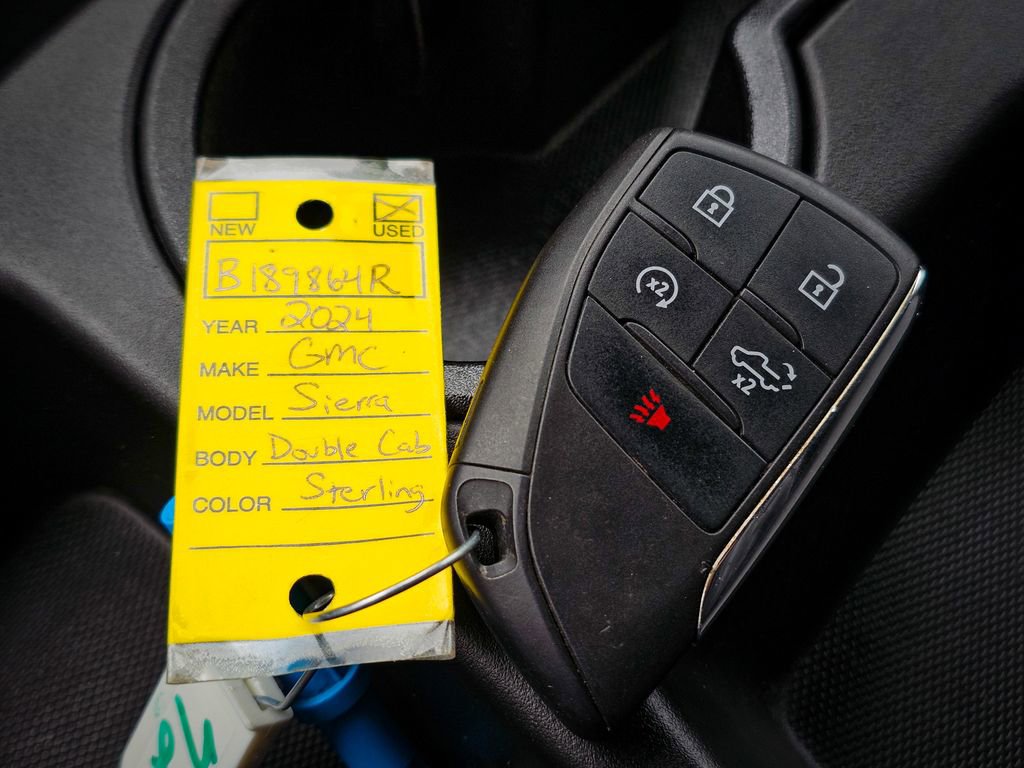 NEW USED
B189864R
YEAR 2024
MAKE GMC
MODEL Sierra
BODY Double Cab
COLOR Sterling
x2
x2